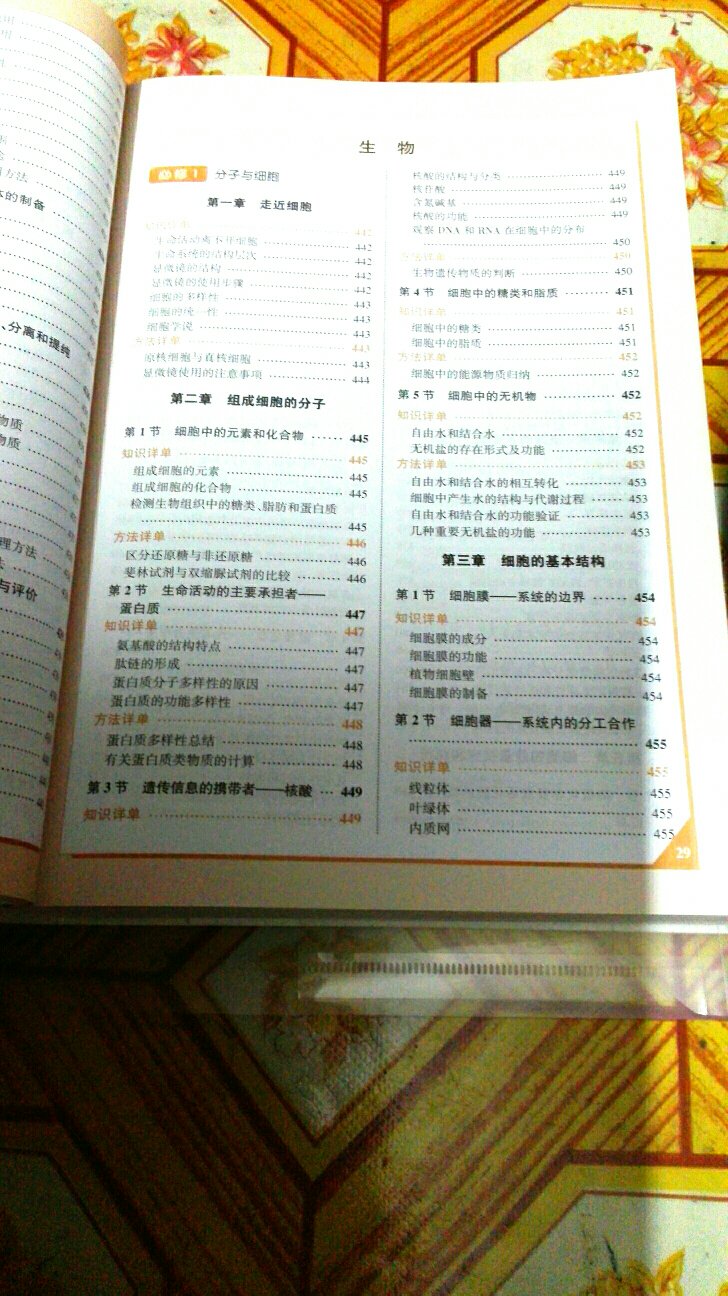 生 物
必修1 分子与细胞
第一章 走近细胞
知识详单 442
生命活动离不开细胞 442
生命系统的结构层次 442
显微镜的结构 442
显微镜的使用步骤 442
细胞的多样性 443
细胞的统一性 443
细胞学说 443
方法详单 443
原核细胞与真核细胞 443
显微镜使用的注意事项 444
第二章 组成细胞的分子
第1节 细胞中的元素和化合物 445
知识详单 445
组成细胞的元素 445
组成细胞的化合物 445
检测生物组织中的糖类、脂肪和蛋白质
445
方法详单 446
区分还原糖与非还原糖 446
斐林试剂与双缩脲试剂的比较 446
第2节 生命活动的主要承担者——
蛋白质 447
知识详单 447
氨基酸的结构特点 447
肽链的形成 447
蛋白质分子多样性的原因 447
蛋白质的功能多样性 447
方法详单 448
蛋白质多样性总结 448
有关蛋白质类物质的计算 448
第3节 遗传信息的携带者——核酸 449
知识详单 449
核酸的结构与分类 449
核苷酸 449
含氮碱基 449
核酸的功能 449
观察DNA和RNA在细胞中的分布
450
方法详单 450
生物遗传物质的判断 450
第4节 细胞中的糖类和脂质 451
知识详单 451
细胞中的糖类 451
细胞中的脂质 451
方法详单 452
细胞中的能源物质归纳 452
第5节 细胞中的无机物 452
知识详单 452
自由水和结合水 452
无机盐的存在形式及功能 452
方法详单 453
自由水和结合水的相互转化 453
细胞中产生水的结构与代谢过程 453
自由水和结合水的功能验证 453
几种重要无机盐的功能 453
第三章 细胞的基本结构
第1节 细胞膜——系统的边界 454
知识详单 454
细胞膜的成分 454
细胞膜的功能 454
植物细胞壁 454
细胞膜的制备 454
第2节 细胞器——系统内的分工合作
455
知识详单 455
线粒体 455
叶绿体 455
内质网 455
29
方法
的制备
、分离和提纯
物质
物质
理方法
与评价